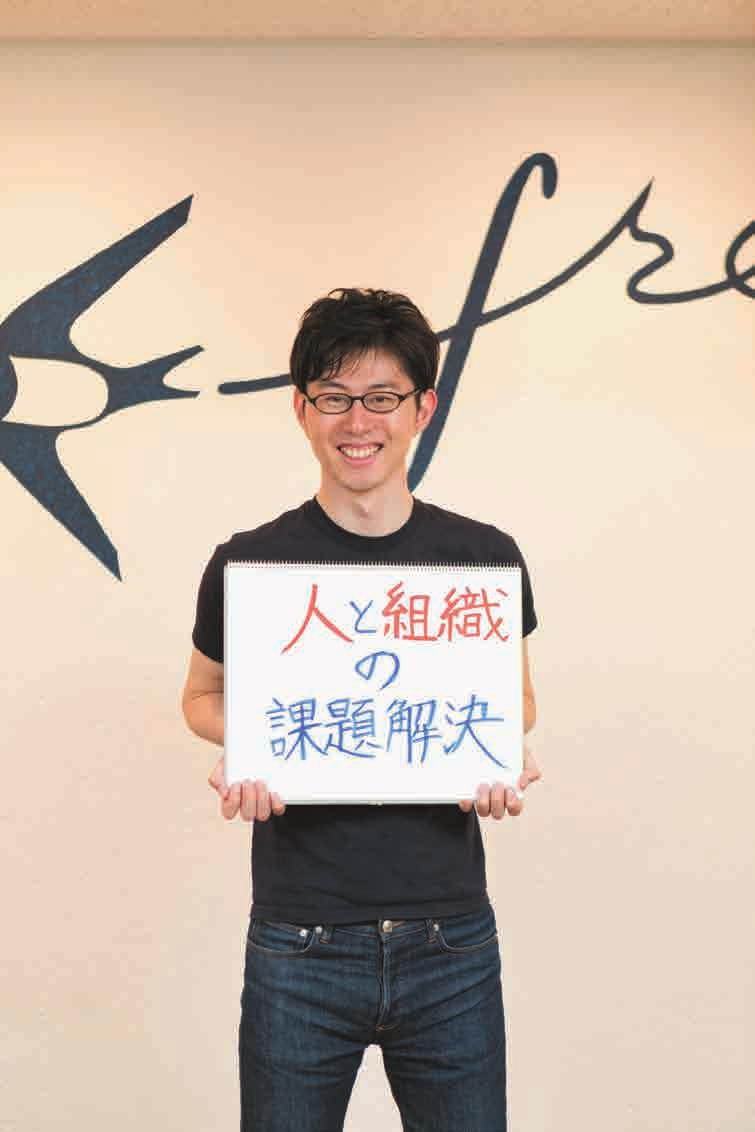 fre
人と組織
の
課題解決